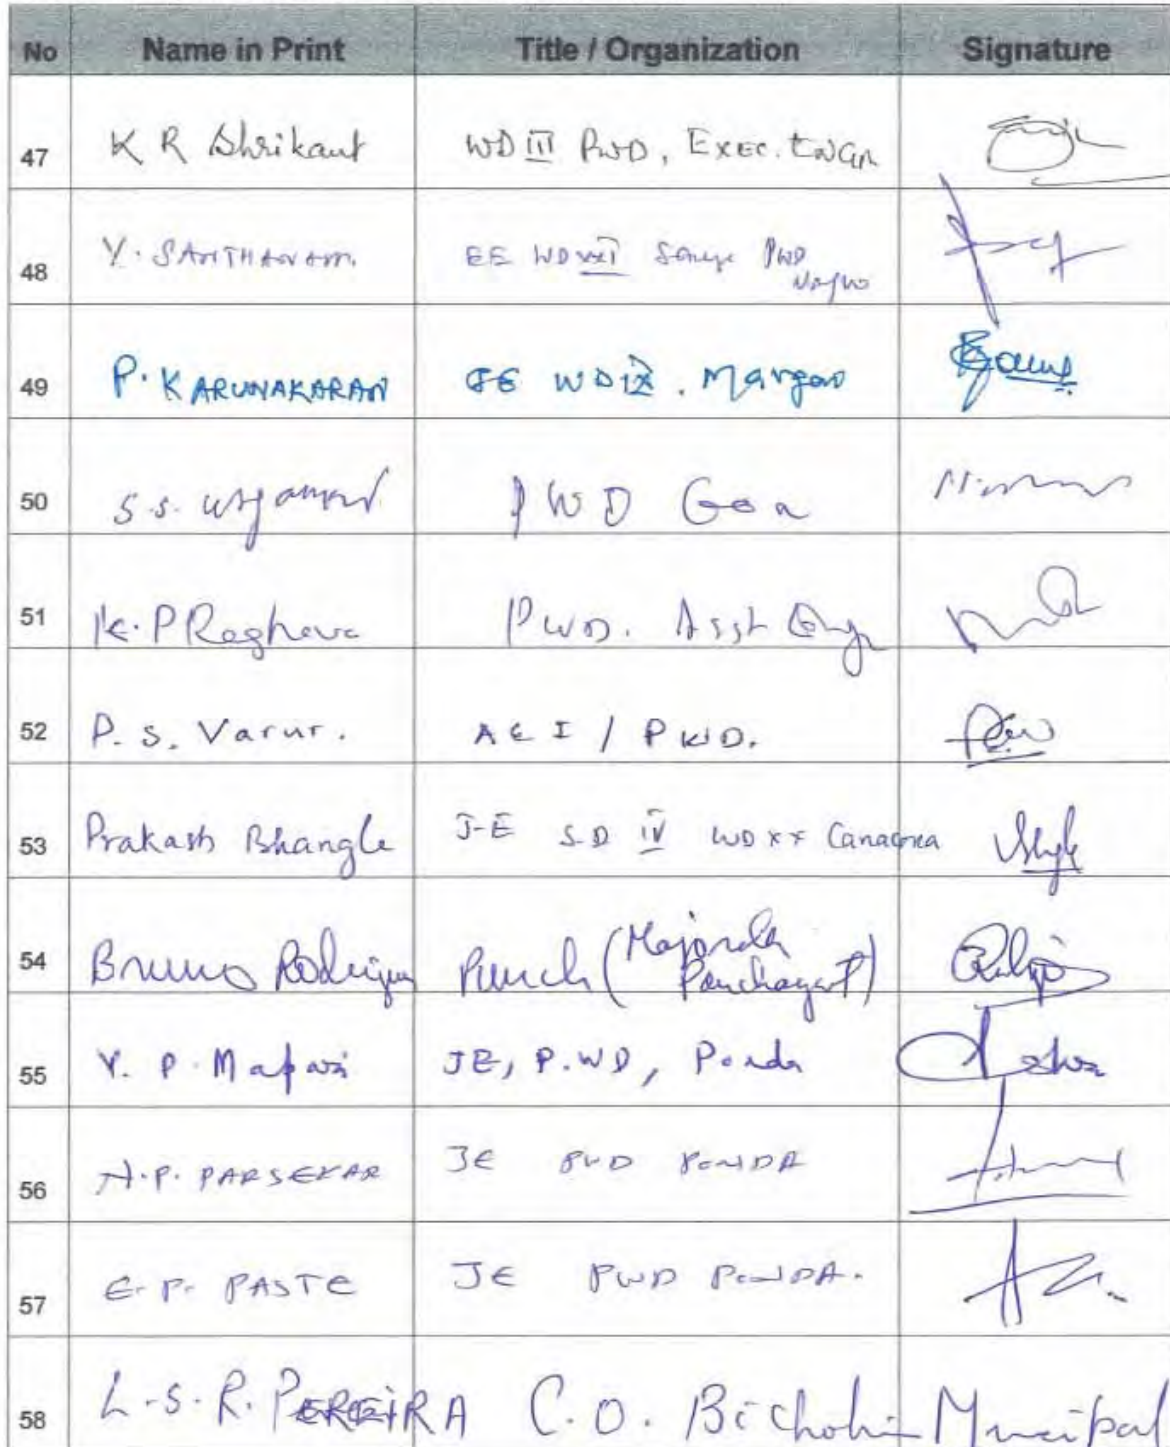 No Name in Print Title / Organization Signature
47 K R Shrikant WD III PWD, EXEC. ENGR
48 Y. SANTHANAM. EE WD PWD
49 P. KARUNAKARAN EE WD IX. Margao
50 S.S. PWD Goa
51 K. P Raghava PWD. Asst Engr
52 P. S. Varur. AE I / PWD.
53 Prakash Bhangle J-E S.D IV WD XX Canacona
54 Bruno Rodrigues Punch (Majorda
Panchayat)
55 Y. P. Mapari JE, P.WD, Ponda
56 A.P. PARSEKAR JE PWD PONDA
57 E. P. PASTE JE PWD PONDA.
58 L.S.R. PEREIRA C.O. Bicholim Muncipal